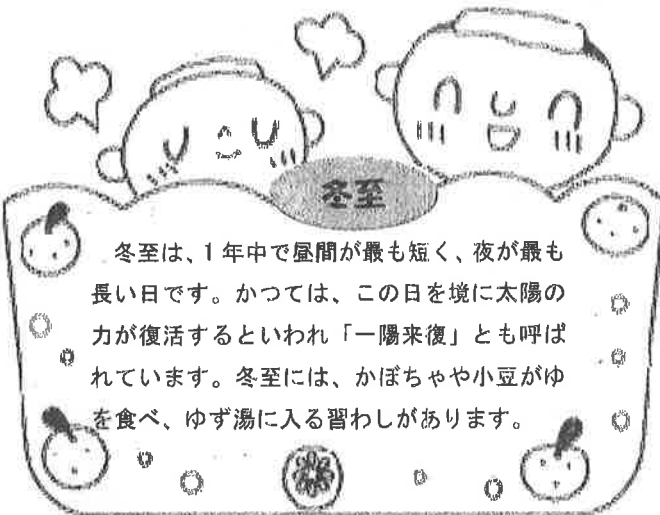 冬至
冬至は、1年中で昼間が最も短く、夜が最も
長い日です。かつては、この日を境に太陽の
力が復活するといわれ「一陽来復」とも呼ば
れています。冬至には、かぼちゃや小豆がゆ
を食べ、ゆず湯に入る習わしがあります。